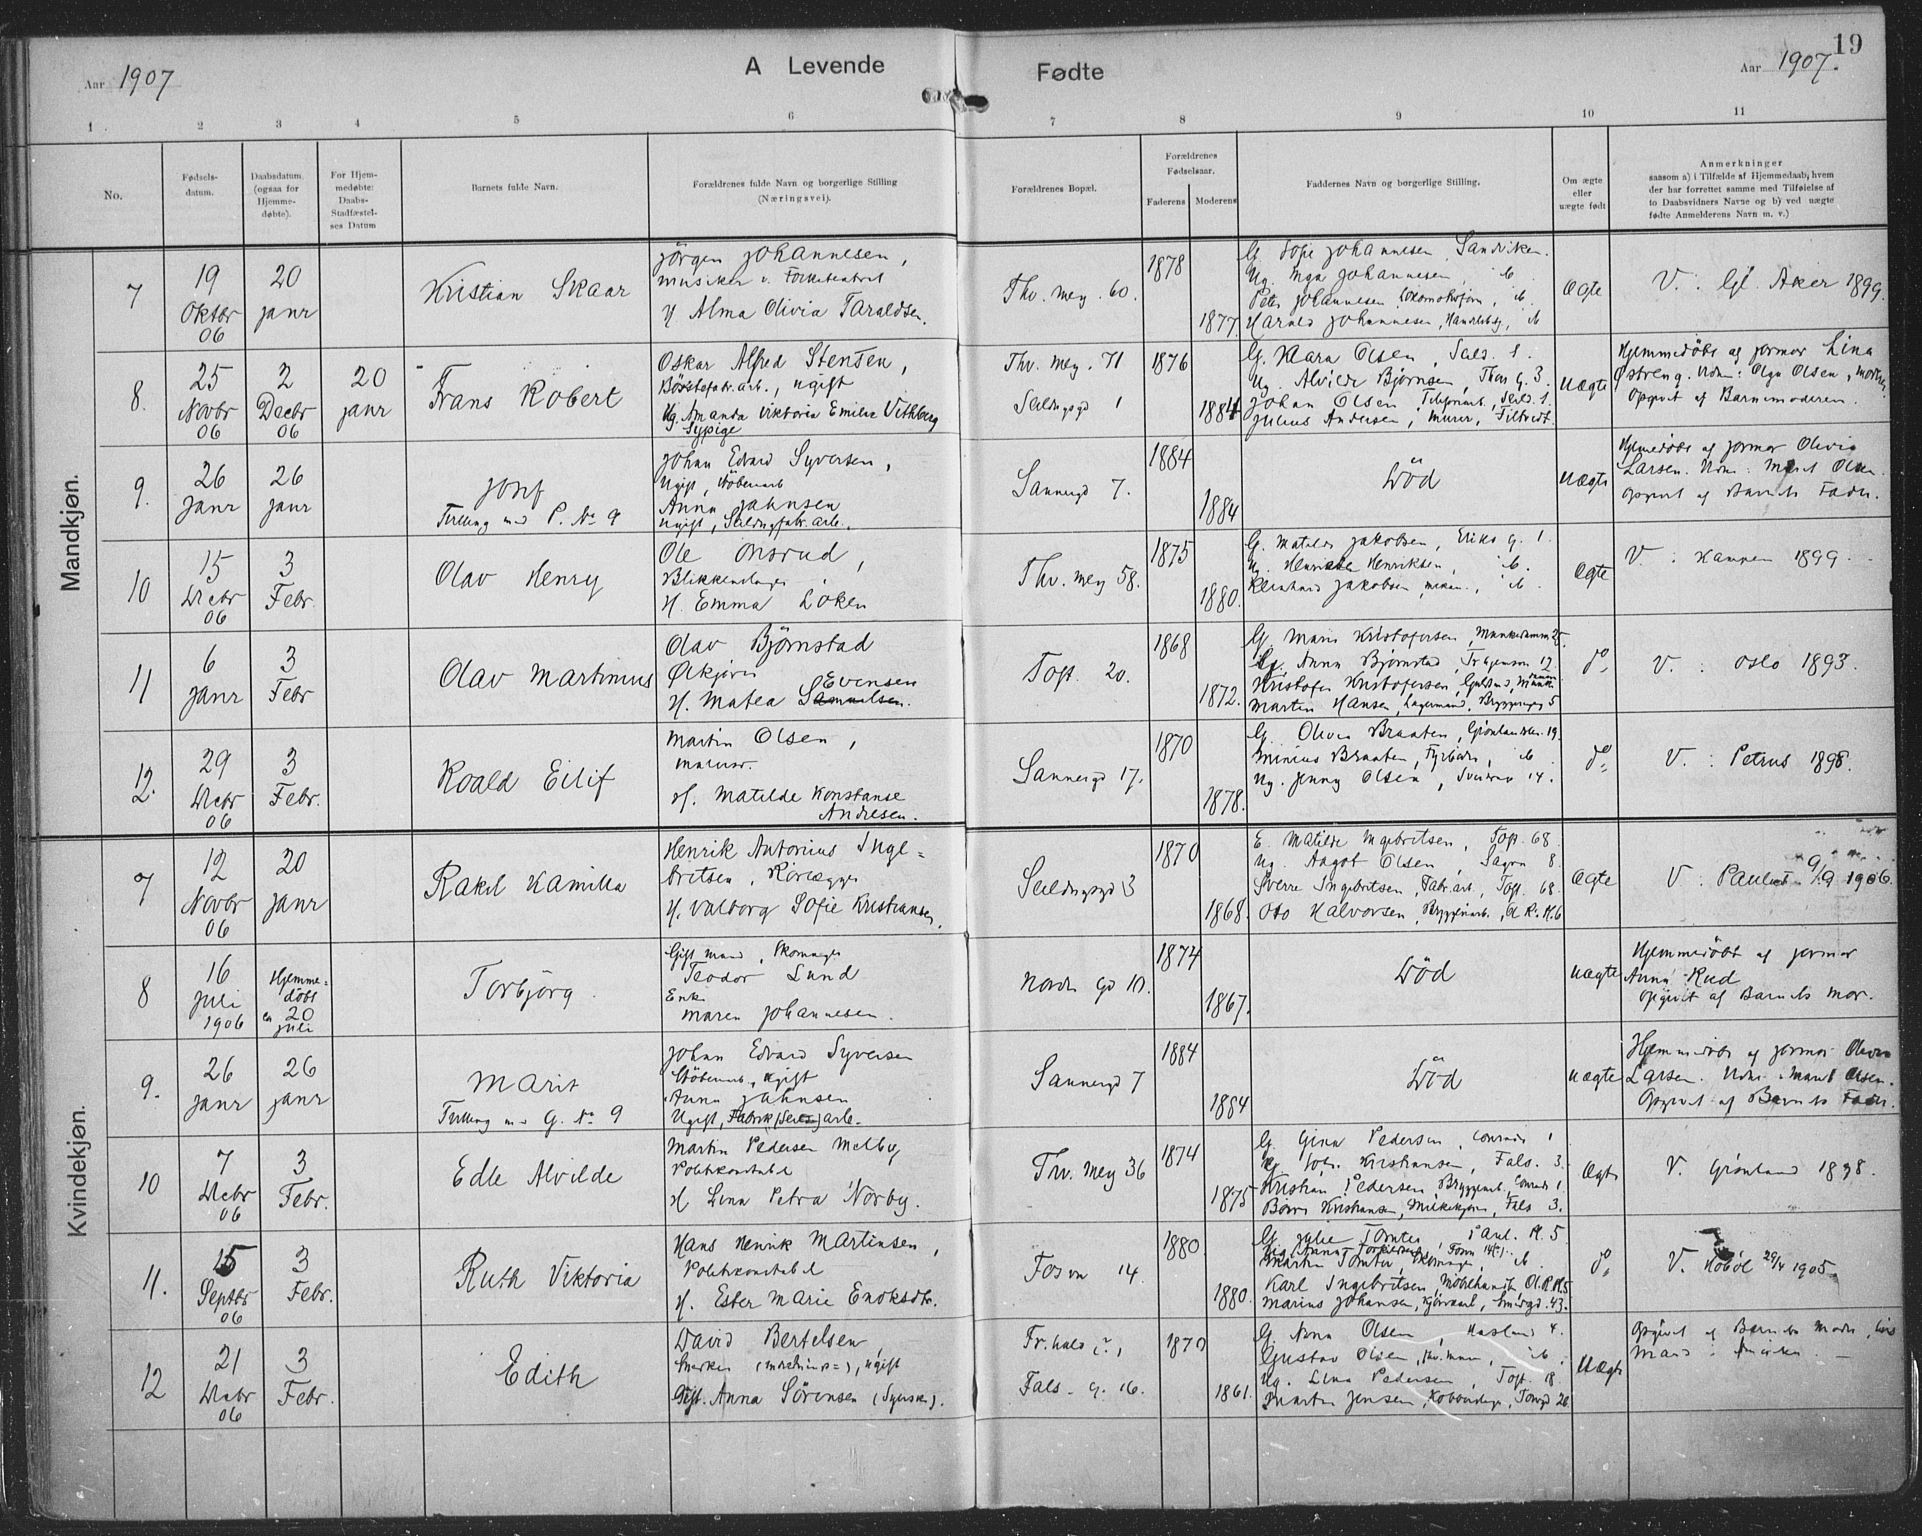 19
Aar 1907
A Levende
Fødte
Aar 1907.
1 2 3 4 5 6 7 8 9 10 11
No.
Fødsels-
datum.
Daabsdatum.
(ogsaa for
Hjemme-
døbte).
For Hjem-
medøbte:
Daabs-
Stadfæstel-
ses Datum
Barnets fulde Navn.
Forældrenes fulde Navn og borgerlige Stilling
(Næringsvei).
Forældrenes Bopæl.
Forældrenes
Fødselsaar.
Faderens
Moderens
Faddernes Navn og borgerlige Stilling.
Om ægte
eller
uægte født
Anmerkninger
saasom a) i Tilfælde af Hjemmedaab, hvem
der har forrettet samme med Tilføielse af
to Daabsvidners Navne og b) ved uægte
fødte Anmelderens Navn m. v.)
Mandkjøn.
7
19
Oktbr
06
20
janr
Kristian Skaar
Jörgen Johannesen,
Musiker v. Folketeatret
H. Alma Olivia Taraldsen.
Thv. mey. 60.
1878
1877
G. Sofie Johannesen, Sandviken.
Ug. Inga Johannesen, ib.
Peter Johannesen, ib.
Harald Johannesen, ib
Ægte
V. : Gl. Aker 1899.
8.
25
Novbr
06
2
Decbr
06
20
janr
Frans Robert
Oskar Alfred Stensen,
Börstefabr. arb., ugift
Ug. Amanda Viktoria Emilie Vithberg
Sypige
Thv. mey. 71
Seildugsgd 1
1876
1884
G. Klara Olsen, Seild. 1.
Ug. Alvilde Bjørnsen, Thor G. 3.
Johan Olsen, Seild. 1.
Julius Andersen, Murer, Filtvedt.
Uægte
Hjemmedöbt af jormor Lina
Østreng. Vidn: Olga Olsen,
Opgivet af Barnemoderen.
9.
26
janr
26
janr
Josef
Tvilling med P. No 9
Johan Edvard Syversen,
Ugift, Stöberiarb
Anna Jahnsen
Ugift, Seildugsfabr. arb.
Sannergd 7.
1884
1884
Död
Uægte
Hjemmedöbt af jormor Olivia
Larsen. Vidn: Marit Olsen.
Opgivet af Barnets Fader.
10
15
Decbr
06
3
Febr.
Olav Henry
Ole Onsrud,
Blikkenslager
H. Emma Loken
Thv. mey 58.
1875
1880.
G. Matilde Jakobsen, Eriks g. 1.
Ug. Henrikke Henriksen, ib.
Reinhard Jakobsen, mekan., ib
Ægte
V. : Kampen 1899.
11
6
janr
3
Febr
Olav Martinius
Olav Björnstad
Ölkjörer
H. Matea Samuelsen. Evensen
Toft. 20.
1868
1872.
G. Marie Kristofersen, Munkedamm 25.
Ug. Anna Bjørnstad,
Kristofer Kristofersen,
Martin Hansen, Lagermand, 5
do
V. : Oslo 1893.
12.
29
Decbr
06
3
Febr.
Roald Eilif
Martin Olsen,
maler.
H. Matilde Konstanse
Andresen.
Sannergd 17.
1870
1878.
G. Olivia Braaten, Grönlandsler. 19.
Minius Braaten, Fyrböder, ib.
Ug. Jenny Olsen, 14.
do
V. : Petrus 1898.
Kvindekjøn.
7
12
Novbr
06
20
janr
Rakel Kamilla
Henrik Antonius Inge-
britsen, Rörlægger
H. Valborg Sofie Kristiansen.
Seildugsgd 3
1870
1868.
E. Matilde Ingebritsen, Toft. 68.
Ug. Aagot Olsen, Sagvn 8.
Sverre Ingebritsen, Fabr. arb., Toft. 68.
Otto Halvorsen, Bryggeriarb.
Ægte
V. : Paulus 9/9 1906.
8
16
juli
1906
Hjemme-
döbt
20
juli
Torbjörg.
Gift mand, Skomager
Teodor Lund
Enke
Maren Johannesen.
Nordre gd 10.
1874
1867.
Död
Uægte
Hjemmedöbt af jormor
Anna Rud
Opgivet af Barnets mor.
9.
26
janr
26
janr
Marit
Tvilling med G. No 9
Johan Edvard Syversen
Stöberiarb., ugift
Anna Jahnsen
Ugift, Fabrik (Seild) arb.
Sannergd 7
1884
1884
Död
Uægte
Hjemmedöbt af jormor Olivia
Larsen. Vidn: Marit Olsen.
Opgivet af Barnets Fader.
10
7
Decbr
06
3
Febr.
Edle Alvilde
Martin Pedersen Melby
Politikonstabel
H Lina Petra Norby.
Thv. Mey 36
1874
1875
G. Gina Pedersen, Conrads 1
Kristiansen, Fals. 3.
Kristian Pedersen Bryggeriarb., Conrads 1
Kristiansen, Melkekjører, Fals 3.
Ægte
V. Grønland 1898.
11.
15
Septbr
06
3
Febr.
Ruth Viktoria
Hans Henrik Martinsen,
Politikonstabel
H. Ester Marie Enoksdtr.
Fosvn 14.
1880
1880.
G. Julie Tomter, Paul. Pl. 5
Ug. Anna
Martin Tomter, Skomager, ib.
Karl Ingebritsen, Möbelhandl.
Marius Johansen, Smedgd. 43.
do
V. Höböl 29/4 1905.
12
21
Decbr
06
3
Febr.
Edith
David Bertelsen
ugift
Gift. Anna Sörensen (Syerske).
Fr. hald
Fals. g. 16.
1870
1861.
G. Anna Olsen, 4.
Gustav Olsen, ib.
Ug. Lina Pedersen, Toft 18
Martin Jensen, 26
Uægte
Opgivet af Barnets Moder,
Mand i Amerika.